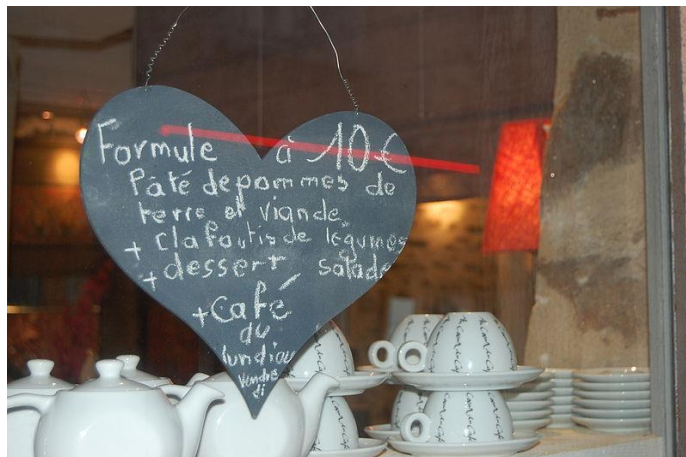 Formule à 10€
Pâté de pommes de
terre et viande
+ clafoutis de légumes
+ dessert salade
+ Café
du
lundi au
vendre
di